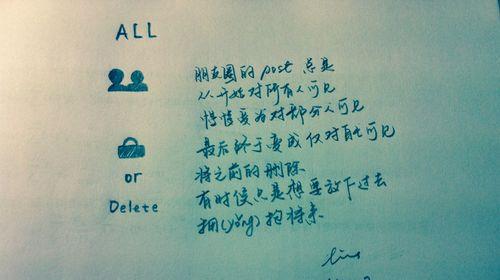 ALL
朋友圈的 post 总是
从开始对所有人可见
慢慢变为对部分人可见
最后终于变成仅对自己可见
or
将之前的删除
Delete
有时候只是想要放下过去
拥(yǒng)抱将来